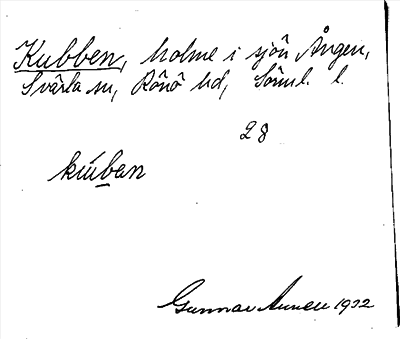 Kubben, holme i sjön Ången,
Svärta sn, Rönö hd, Söml. l.
28
kúban
Gunnar 1932